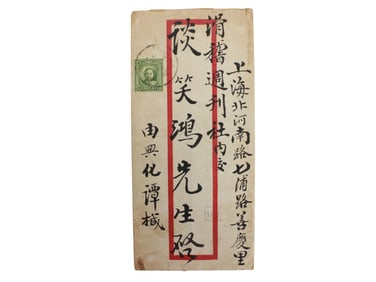 上海北河南路七浦路善慶里
滑稽週刊社內交
談笑鴻先生啓
由興化譚椷